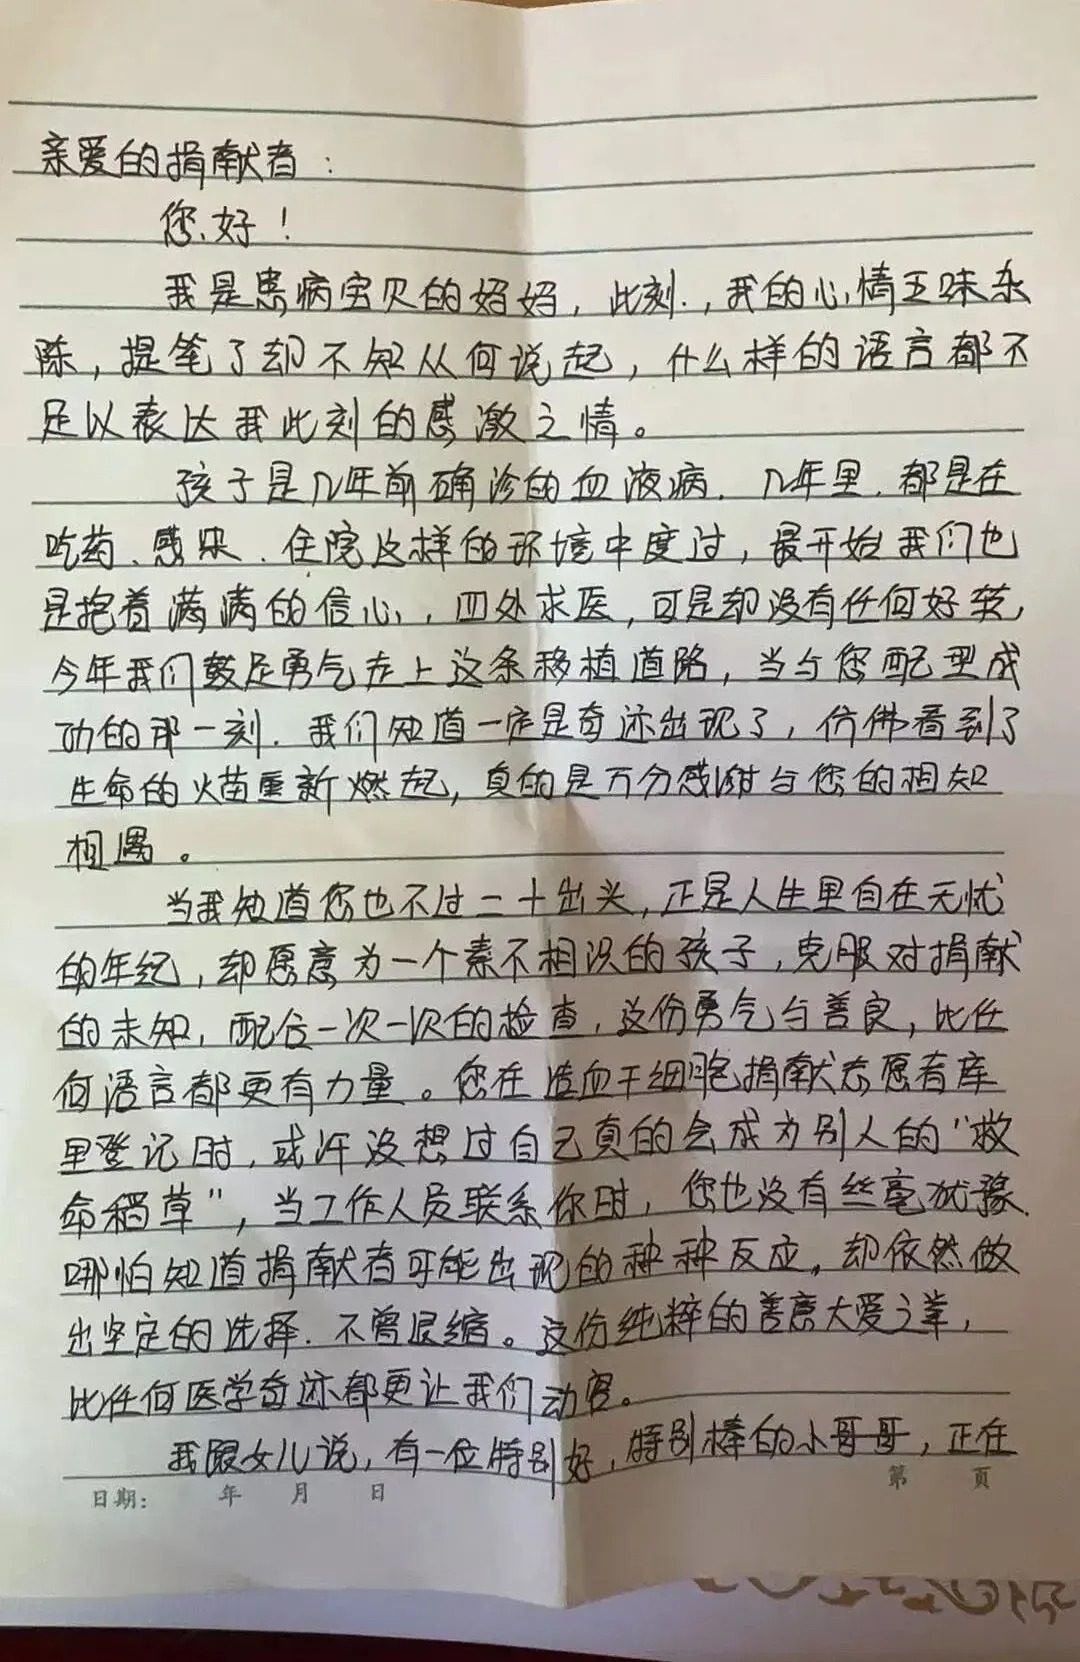 亲爱的捐献者：
您好！
我是患病宝贝的妈妈，此刻，我的心情五味杂
陈，提笔了却不知从何说起，什么样的语言都不
足以表达我此刻的感激之情。
孩子是几年前确诊的血液病．几年里．都是在
吃药、感染、住院这样的环境中度过，最开始我们也
是抱着满满的信心，四处求医，可是却没有任何好转，
今年我们鼓足勇气走上这条移植道路，当与您配型成
功的那一刻．我们知道一定是奇迹出现了，仿佛看到了
生命的火苗重新燃起，真的是万分感谢与您的相知
相遇。
当我知道您也不过二十出头，正是人生里自在无忧
的年纪，却愿意为一个素不相识的孩子，克服对捐献
的未知，配合一次一次的检查，这份勇气与善良，比任
何语言都更有力量。您在造血干细胞捐献志愿者库
里登记时，或许没想过自己真的会成为别人的“救
命稻草”，当工作人员联系你时，您也没有丝毫犹豫．
哪怕知道捐献者可能出现的种种反应，却依然做
出坚定的选择．不曾退缩。这份纯粹的善意大爱之举，
比任何医学奇迹都更让我们动容。
我跟女儿说，有一位特别好，特别棒的小哥哥，正在
日期： 年 月 日 第 页